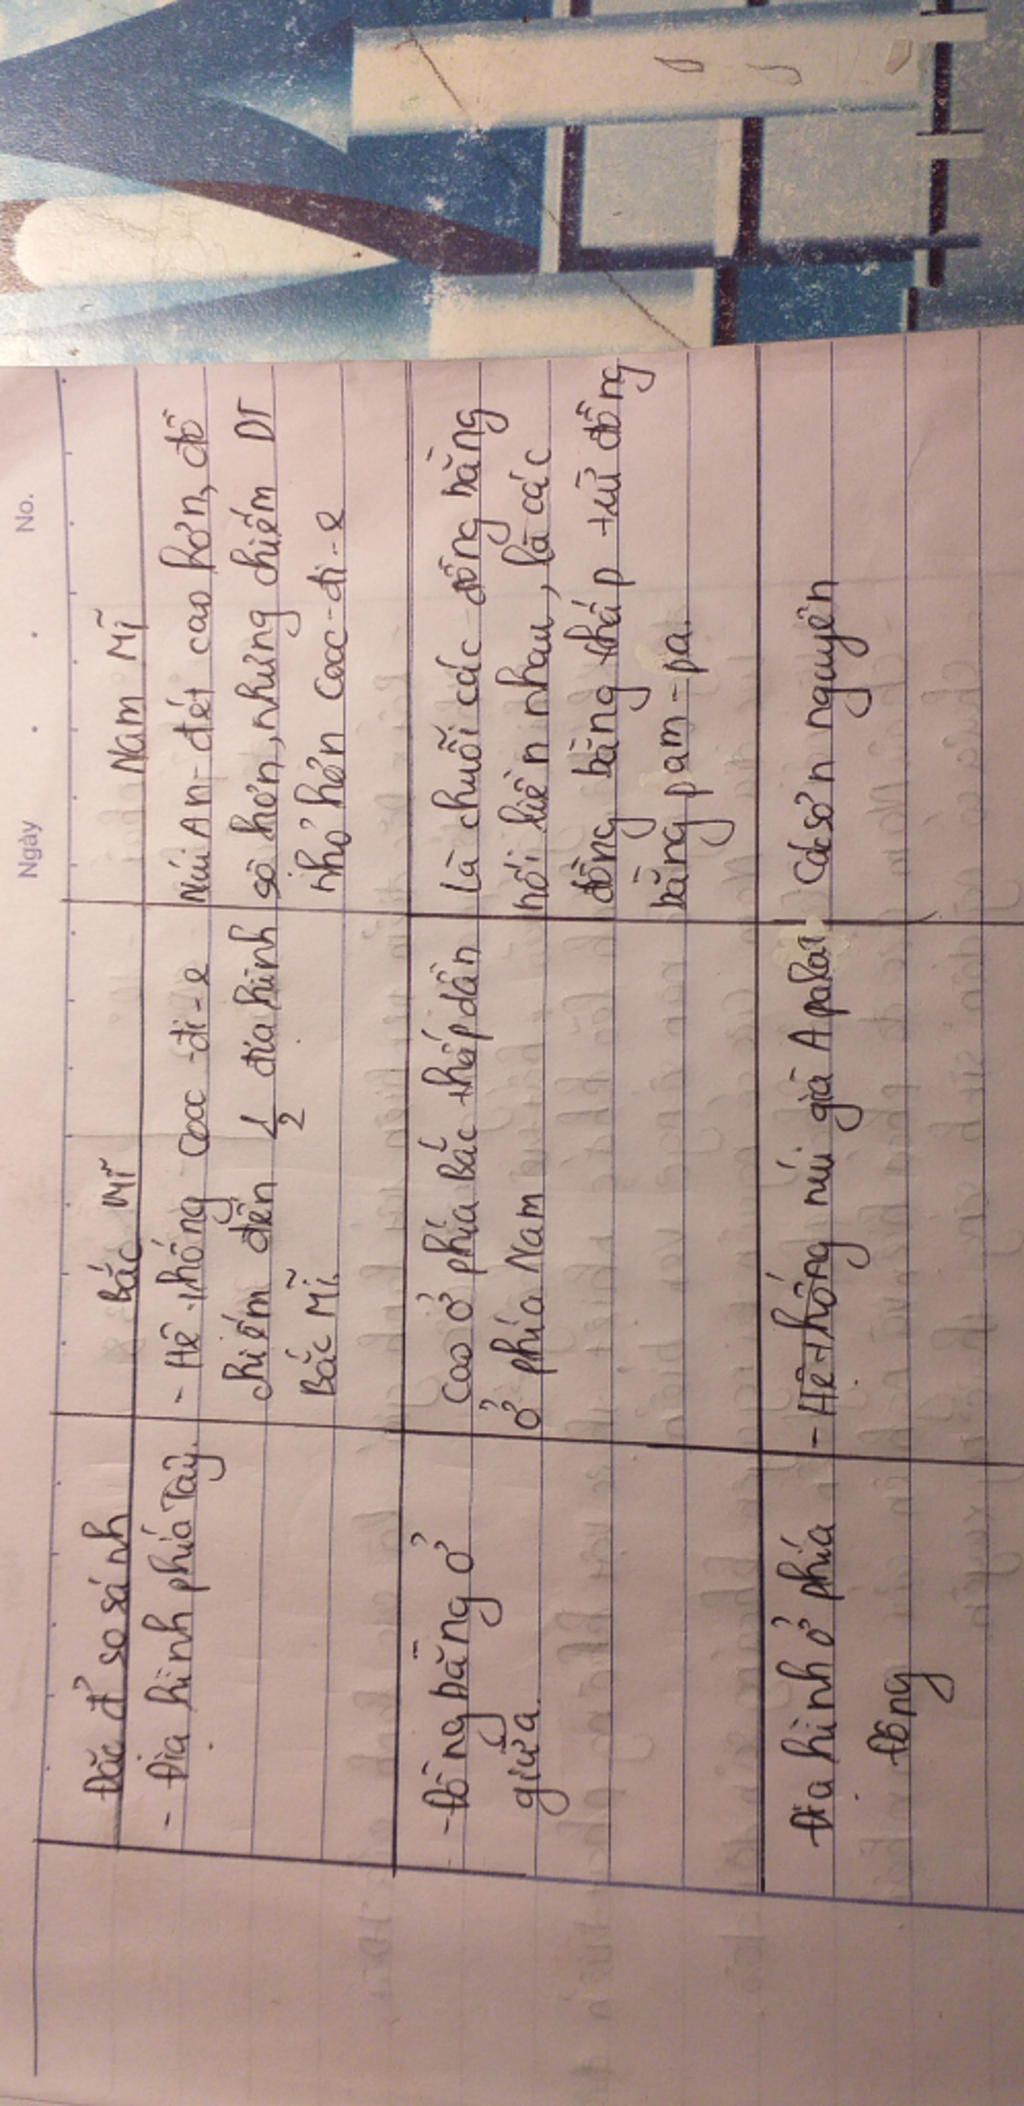 Ngày . . No.
Đặc đ' so sánh
Bắc Mĩ
Nam Mĩ
- Địa hình phía Tây.
- Hệ thống Cooc-đi-e
chiếm đến 1/2 địa hình
Bắc Mĩ.
Núi An-đét cao hơn, đồ
sộ hơn, nhưng chiếm DT
nhỏ hơn Cooc-đi-e
- Đồng bằng ở
giữa.
Cao ở phía Bắc thấp dần
ở phía Nam
Là chuỗi các đồng bằng
nối liền nhau, là các
đồng bằng thấp trừ đồng
bằng pam-pa.
Địa hình ở phía
Đông
- Hệ thống núi già Apalat
Các sơn nguyên